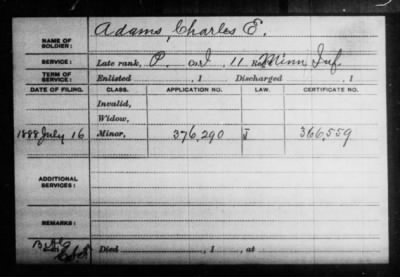 NAME OF SOLDIER: Adams, Charles E.
SERVICE: Late rank, P. Co. I, 11 Reg't Minn. Inf.
TERM OF SERVICE: Enlisted , 1 Discharged , 1
DATE OF FILING. CLASS. APPLICATION NO. LAW. CERTIFICATE NO.
Invalid,
Widow,
1888 July 16 Minor, 376,290 366,559
ADDITIONAL SERVICES:
REMARKS:
Died , 1 , at